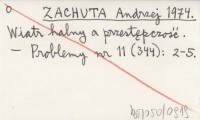 ZACHUTA Andrzej 1974.
Wiatr halny a przestępczość.
– Problemy nr 11 (344): 2-5.